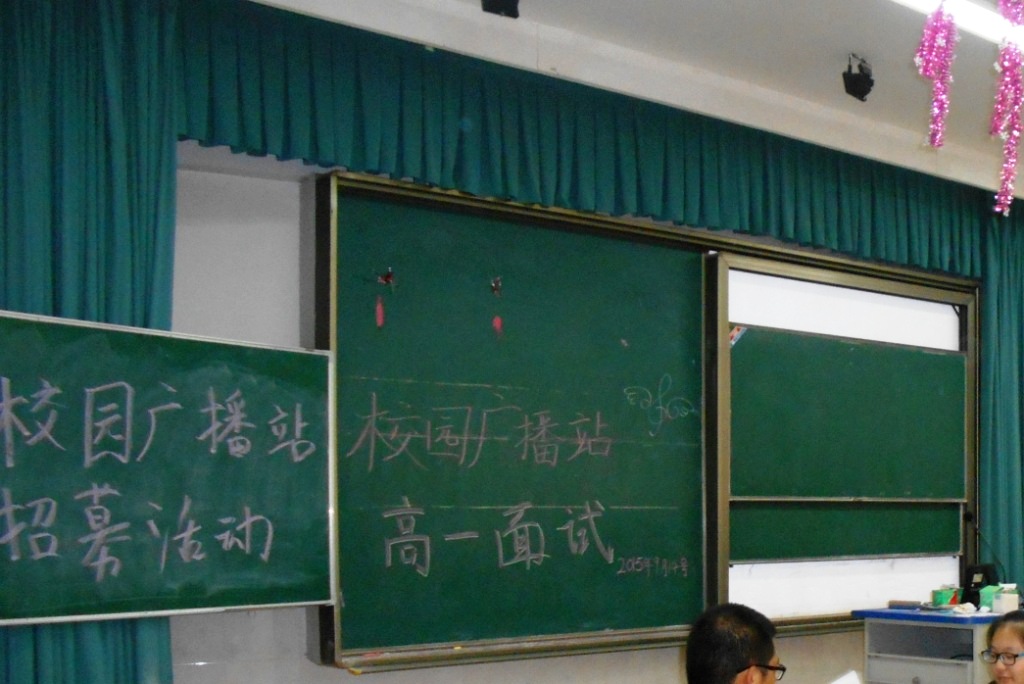 校园广播站
招募活动
校园广播站
高一面试
2015年9月14号